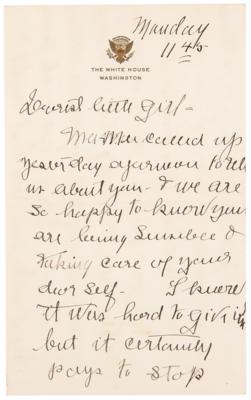 Monday
11 45
THE WHITE HOUSE
WASHINGTON
Dearest little girl -
Ma-Mu called up
yesterday afternoon to tell
us about you - & we are
so happy to know you
are being sensible &
taking care of your
dear self - I know
it was hard to give in
but it certainly
pays to stop